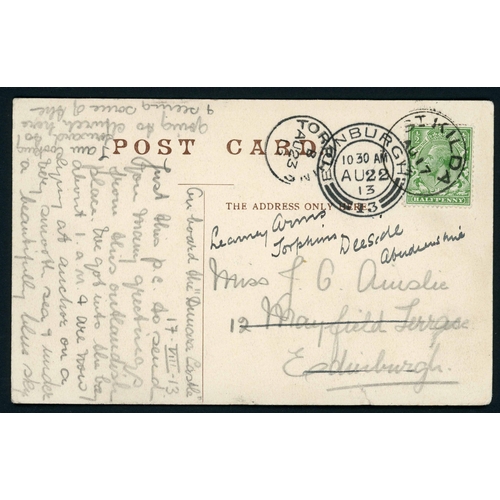 POST CARD
THE ADDRESS ONLY HERE
ST. KILDA
AU 17
HALFPENNY
EDINBURGH
10 30 AM
AU 22
13
13
TORP
AU 23
Learney Arms
Torphins Deeside
Aberdeenshire
Miss J. C. Ainslie
12 Mayfield Terrace
Edinburgh.
On board the "Dunara Castle"
17-VIII-13
Just this p.c. to send
you many greetings
from this outlandish
place. We got into the bay
about 1 a.m & are now
lying at anchor on a
very smooth sea & under
a beautifully blue sky
I am looking
forward to
going to church here
& seeing some of the